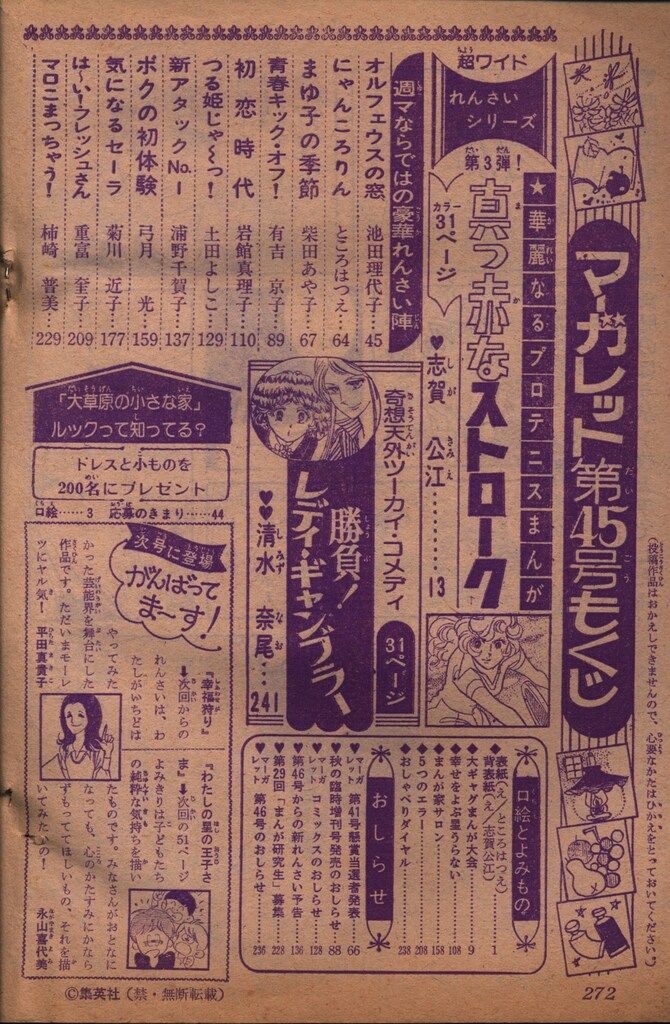 マーガレット第45号もくじ
(投稿作品はおかえしできませんので、必要なかたはひかえをとっておいてください。)
超ワイド
れんさい
シリーズ
第3弾!
★華麗なるプロテニスまんが
真っ赤なストローク
カラー
31ページ
♥志賀公江………13
週マならではの豪華れんさい陣
オルフェウスの窓 池田理代子…45
にゃんころりん ところはつえ…64
まゆ子の季節 柴田あや子…67
青春キック・オフ! 有吉京子…89
初恋時代 岩館真理子…110
つる姫じゃ〜っ! 土田よしこ…129
新アタックNo.1 浦野千賀子…137
ボクの初体験 弓月光…159
気になるセーラ 菊川近子…177
は〜い!フレッシュさん 重富奎子…209
マロニまっちゃう! 柿崎普美…229
奇想天外ツーカイ・コメディ
勝負!レディ・ギャンブラー
31ページ
♥♥清水奈尾…241
「大草原の小さな家」
ルックって知ってる?
ドレスと小ものを
200名にプレゼント
口絵……3 応募のきまり……44
次号に登場
がんばって
ま〜す!
『幸福狩り』
➡次回からの
れんさいは、わ
たしがいちどは
やってみた
かった芸能界を舞台にした
作品です。ただいまモーレ
ツにヤル気! 平田真貴子
『わたしの星の王子さ
ま』➡次回の51ページ
よみきりは子どもたち
の純粋な気持ちを描い
たものです。みなさんがおとなに
なっても、心のかたすみにかなら
ずもっててほしいもの、それを描
いてみたいの! 永山喜代美
口絵とよみもの
表紙(え/ところはつえ)
背表紙(え/志賀公江)……1
◆大ギャグまんが大会……9
◆幸せをよぶ星うらない……108
◆まんが家サロン……158
◆5つのエラー……208
◆おしゃべりダイヤル……238
おしらせ
♥マーガレット第41号懸賞当選者発表……66
♥秋の臨時増刊号発売のおしらせ……88
♥マーガレットコミックスのおしらせ……128
♥第46号からの新れんさい予告……136
♥第29回「まんが研究生」募集……228
♥マーガレット第46号のおしらせ……236
©集英社(禁・無断転載)
272